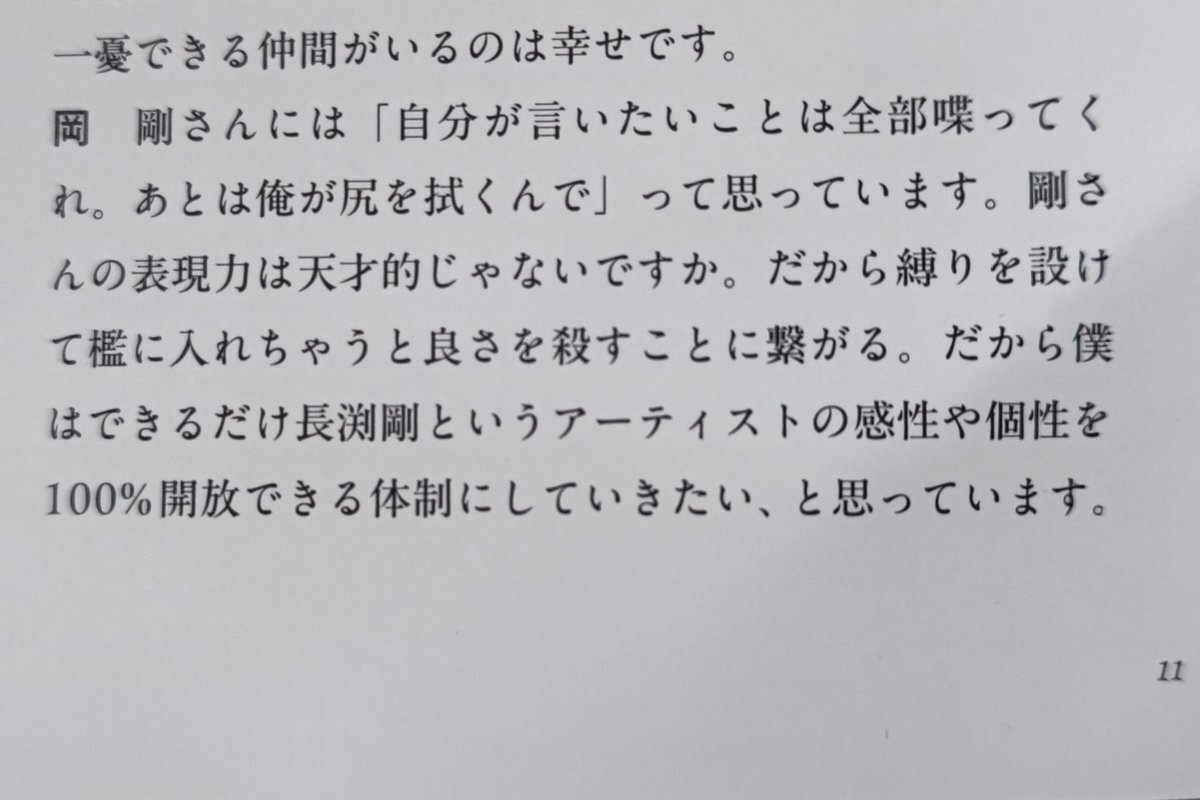 一憂できる仲間がいるのは幸せです。
岡　剛さんには「自分が言いたいことは全部喋ってく
れ。あとは俺が尻を拭くんで」って思っています。剛さ
んの表現力は天才的じゃないですか。だから縛りを設け
て檻に入れちゃうと良さを殺すことに繋がる。だから僕
はできるだけ長渕剛というアーティストの感性や個性を
100%開放できる体制にしていきたい、と思っています。
11